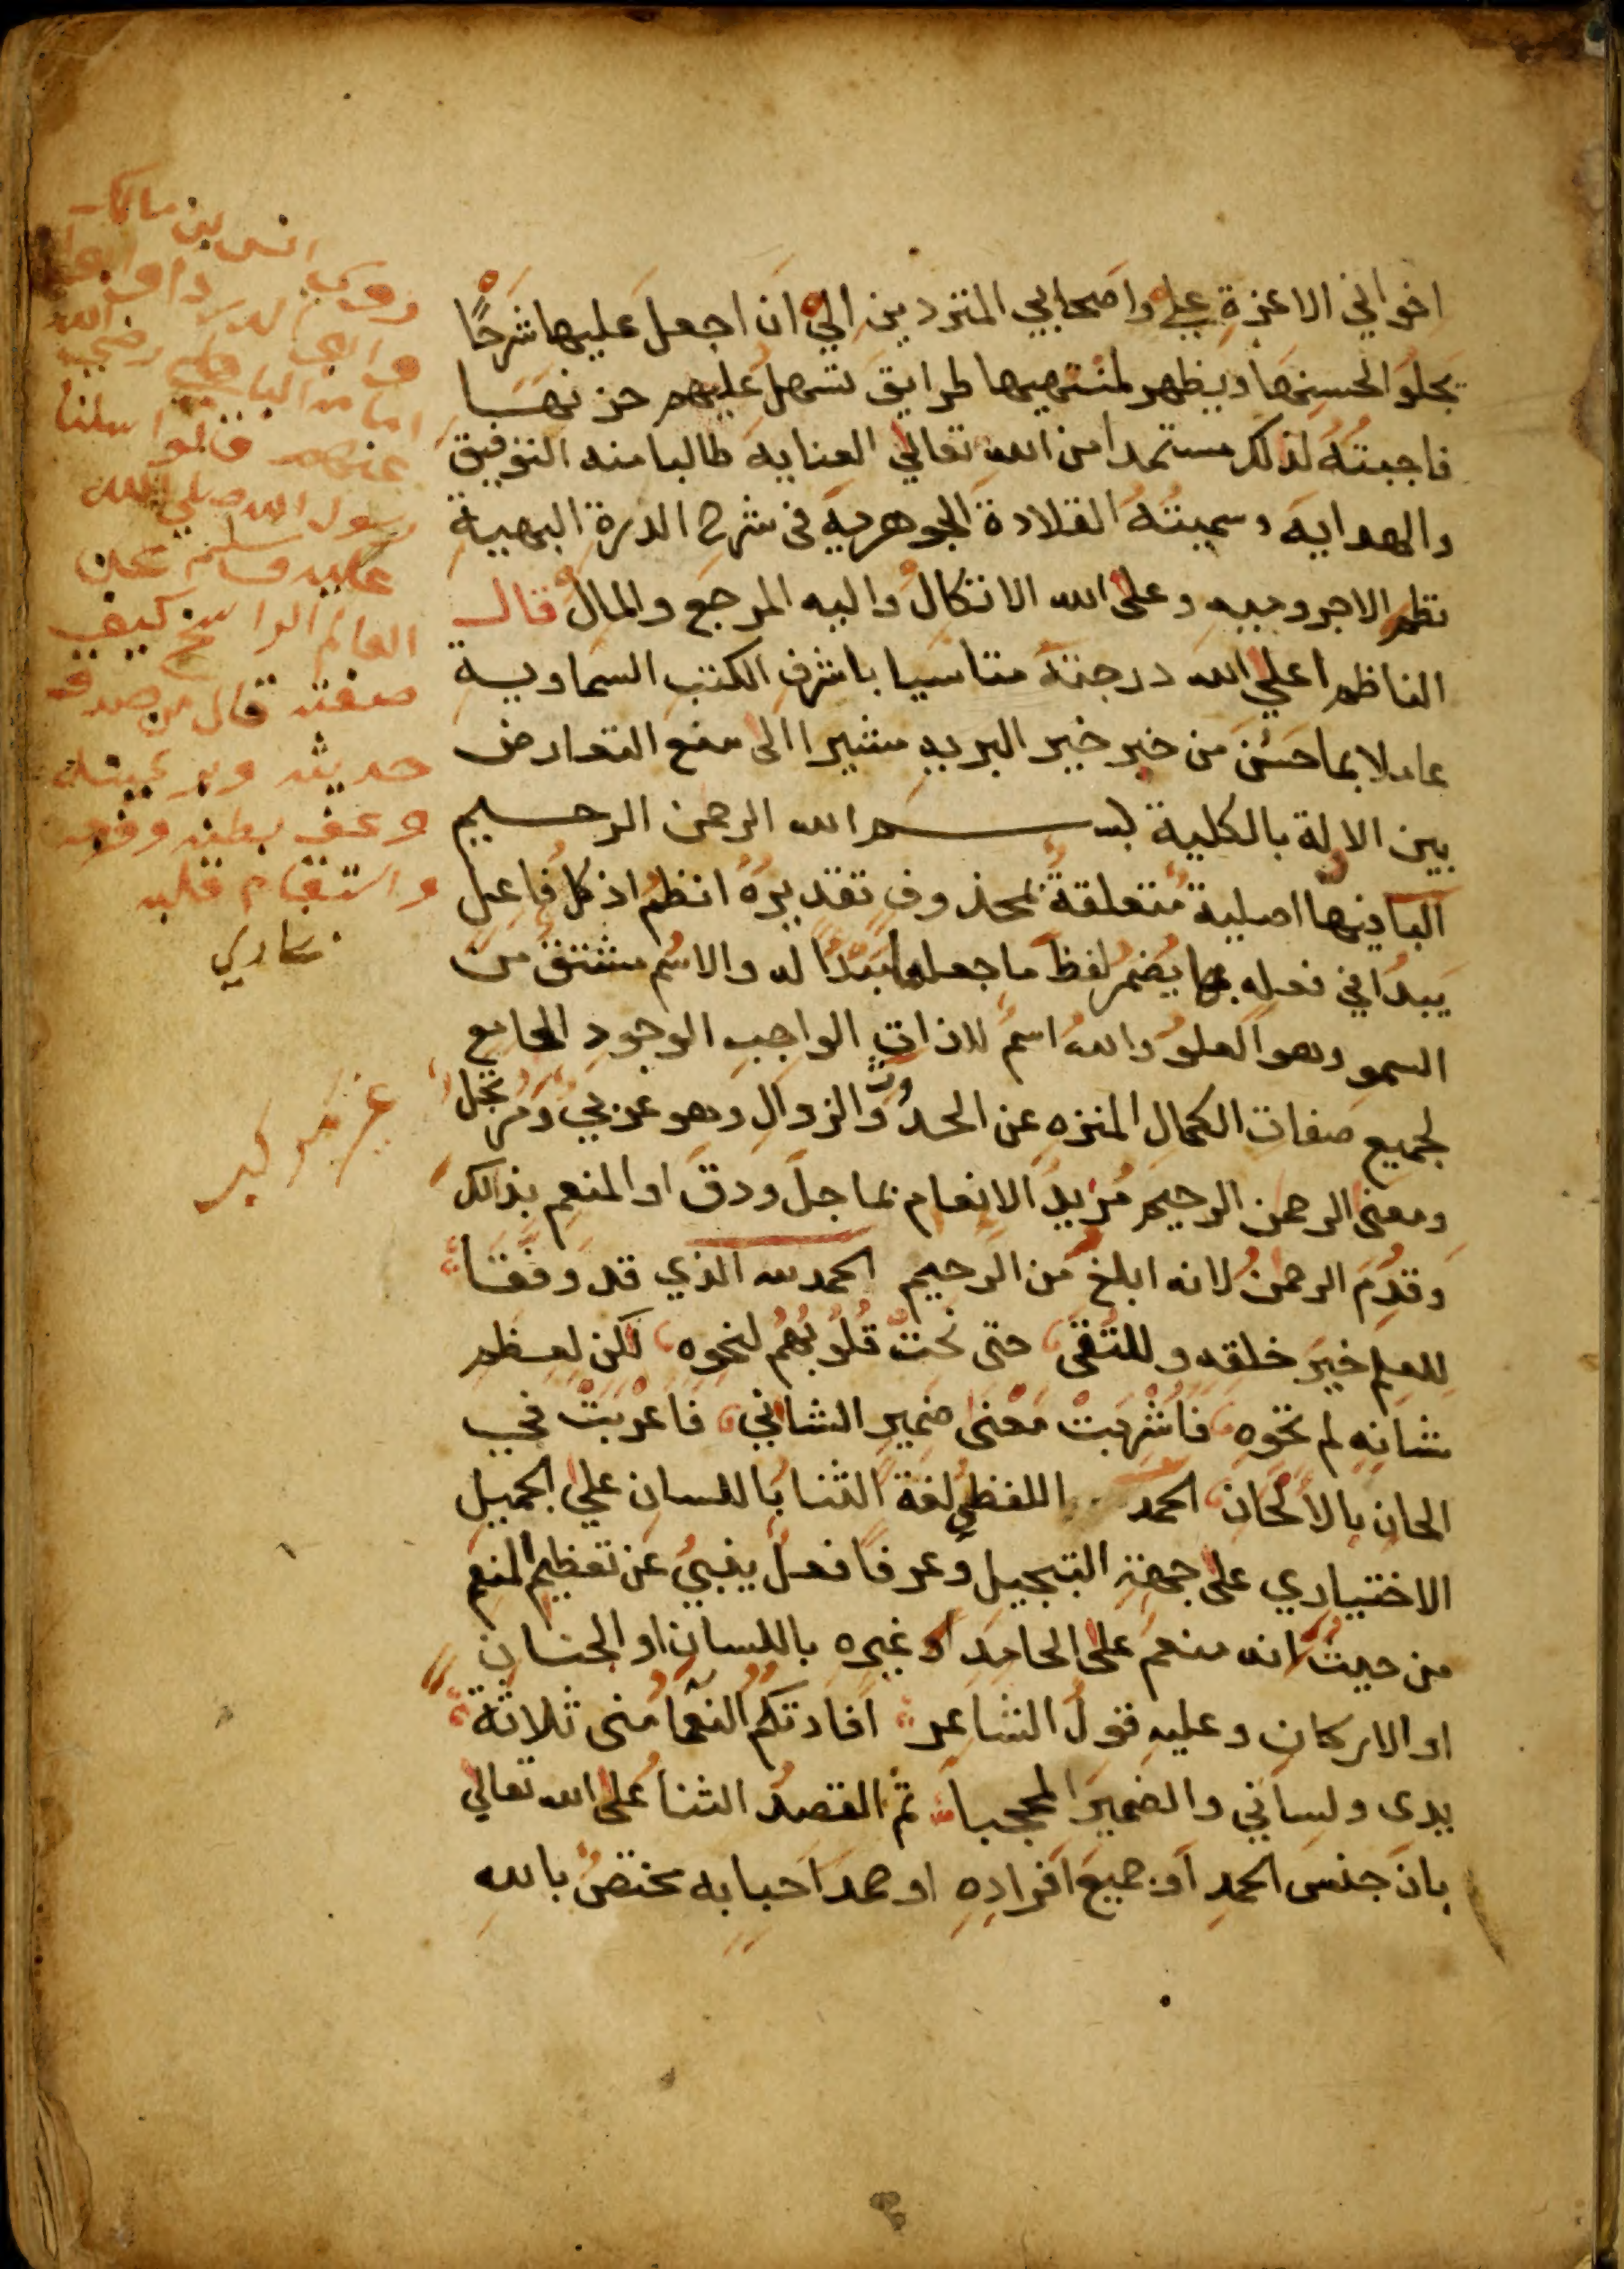 اخواني الاعزة علي واصحابي المترددين الي ان اجعل عليها شرحا
يجلوا لحسنها ويظهر لمنتهيها طرايق تسهل عليهم حزنها
فاجبته لذلك مستمدا من الله تعالي العنايه طالبا منه التوفيق
والهدايه وسميته القلادة الجوهريه في شرح الدرة البهية
نظم الاجروميه وعلى الله الاتكال واليه المرجع والمال قال
الناظم اعلي الله درجته متاسيا باشرف الكتب السماوية
عاملا بما حسن من خبر خير البريه مشيرا الى منع التعارض
بين الادلة بالكلية بسم الله الرحمن الرحيم
البا فيها اصلية متعلقة بمحذوف تقديره انظم اذ كل فاعل
يبدا في فعله بها يضمر لفظ ما جعلها مبدا له والاسم مشتق من
السمو وهو العلو والله اسم للذات الواجب الوجود الجامع
لجميع صفات الكمال المنزه عن الحدوث والزوال وهو عربي ومرتجل
ومعنى الرحمن الرحيم مريد الانعام بما جل ودق او المنعم بذلك
وقدم الرحمن لانه ابلغ من الرحيم الحمد لله الذي قد وفقا
للعلم خير خلقه وللتقى حتى نحت قلوبهم لنحوه لكن لعظم
شانه لم تحوه فاشربت معنى ضمير الشاني فاعربت في
الحان بالالحان الحمد اللفظي لغة الثنا باللسان علي الجميل
الاختياري على جهة التبجيل وعرفا فعل ينبي عن تعظيم المنعم
من حيث انه منعم على الحامد او غيره باللسان او الجنان
او الاركان وعليه قول الشاعر افادتكم النعما مني ثلاثة
يدى ولساني والضمير المحجبا ثم القصد الثنا على الله تعالي
بان جنس الحمد او جميع افراده او حمد احبابه مختص بالله
وروي انس بن مالك
وابي
امامة الباهلي رضي الله
عنهم قالوا سلنا
رسول الله صلي الله
عليه وسلم عن
العالم الراسخ كيف
صفته قال من صدق
حديثه وبر يمينه
وعف بطنه وفرجه
واستقام قلبه